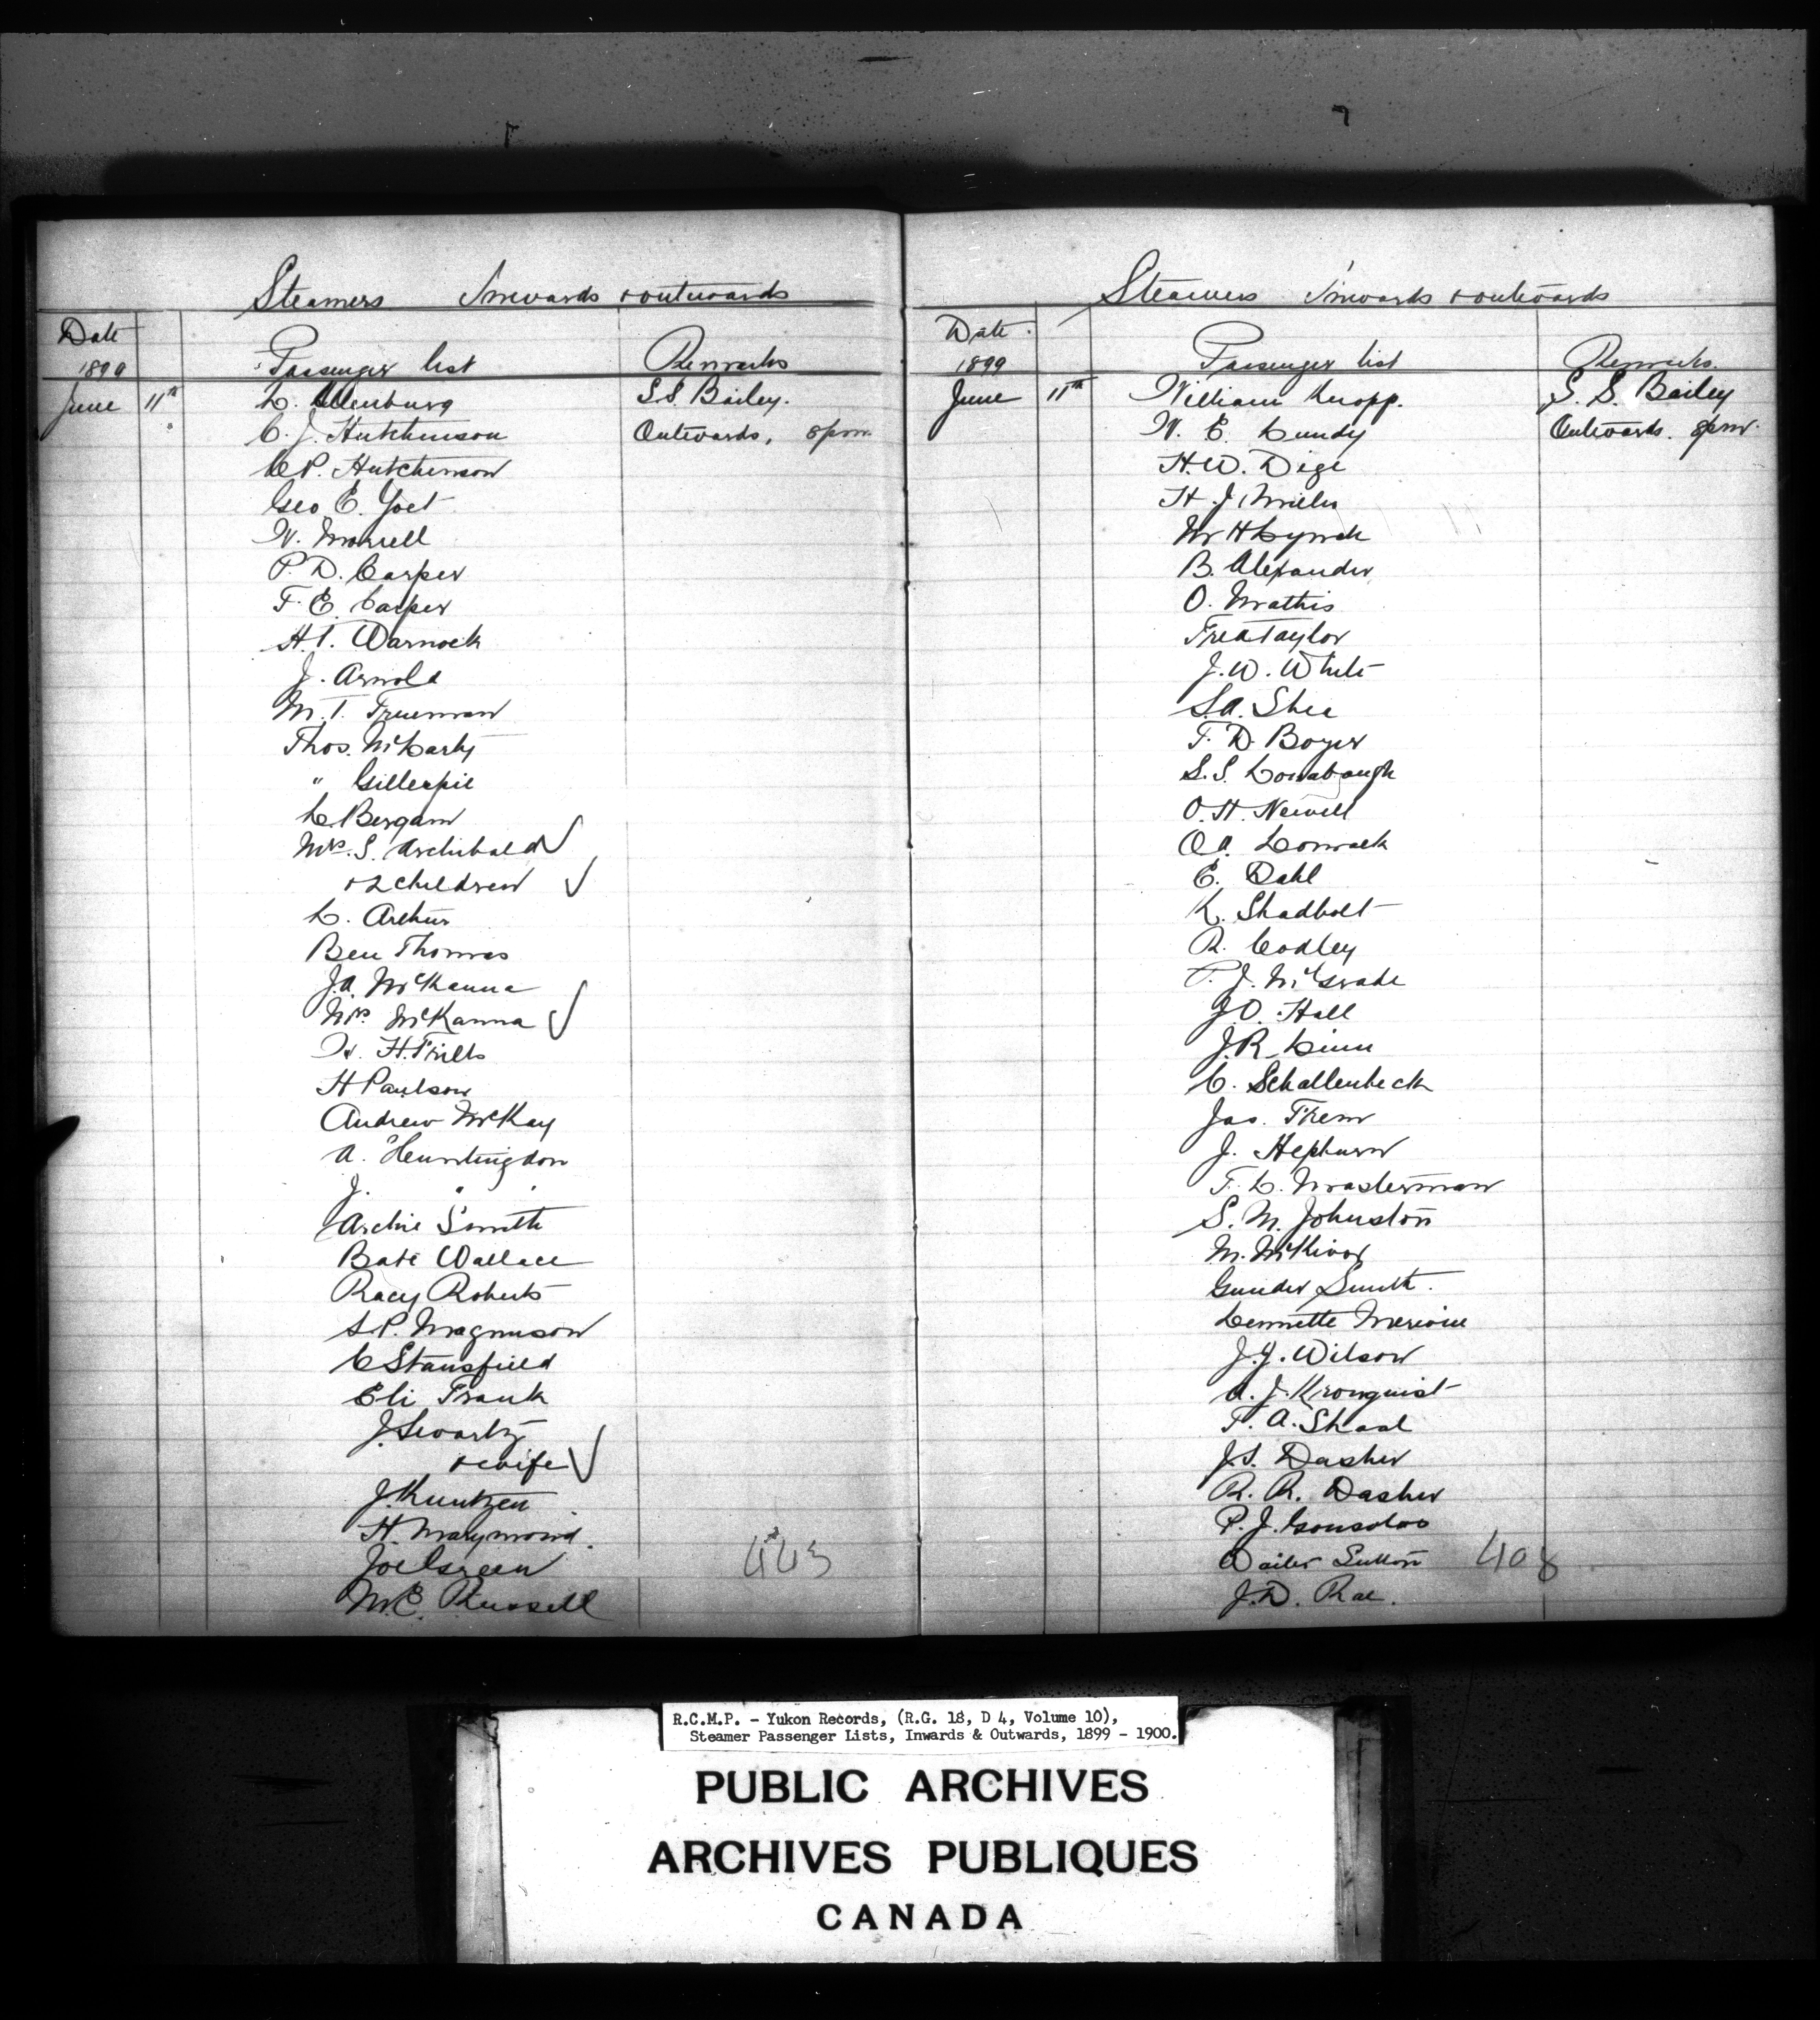 Steamers Inwards & outwards
Date
1899
Passenger list
Remarks
June 11th L. Ellenburg S.S. Bailey.
C. J. Hutchinson Outwards, 8 pm.
C P. Hutchinson
Geo E. Yoet
W. Morrell
P. D. Carper
F. E. Carper
H. T. Warnock
J. Arnold
M. T. Trueman
Thos. McCarty
" Gillespie
C Bergam
Mrs. S. Archibald
& 2 children
L. Arthur
Ben Thomas
J.A. McKanna
Mrs McKanna
W. H. Trilts
H Paulson
Andrew McKay
A. Huntingdon
J. " "
Archie Smith
Bate Wallace
Racy Roberts
S.P. Magnuson
C Stansfield
Eli Frank
J. Swartz
& wife
J. Kuntzen
H. Marymond.
Joe Green
M.E. Russell
443
Steamers Inwards & outwards
Date
1899
Passenger list
Remarks.
June 11th William Knopp. S. S. Bailey
W. E. Lundy Outwards. 8 pm.
H. W. Dege
H. J. Miller
W H Lynch
B. Alexander
O. Mathis
Fred Taylor
J. W. White
S.A. Shea
F. D. Boyer
S. S. Lonabaugh
O. H. Newell
O A. Lomack
E. Dahl
K. Shadbolt
R. Codley
P. J. McGrade
J.O. Hall
J.R. Linn
C. Schallenbeck
Jas. Threm
J. Hepburn
F. L. Masterman
S. M. Johnston
M. McKivor
Gunder Smith.
Lennette Mersoie
J. Y. Wilson
A. J. Kronquist
F. A. Shaal
J. S. Dasher
R. R. Dasher
P. J. Gonsolos
Sutton
J. D. Rae.
408
R.C.M.P. - Yukon Records, (R.G. 18, D 4, Volume 10),
Steamer Passenger Lists, Inwards & Outwards, 1899 - 1900.
PUBLIC ARCHIVES
ARCHIVES PUBLIQUES
CANADA